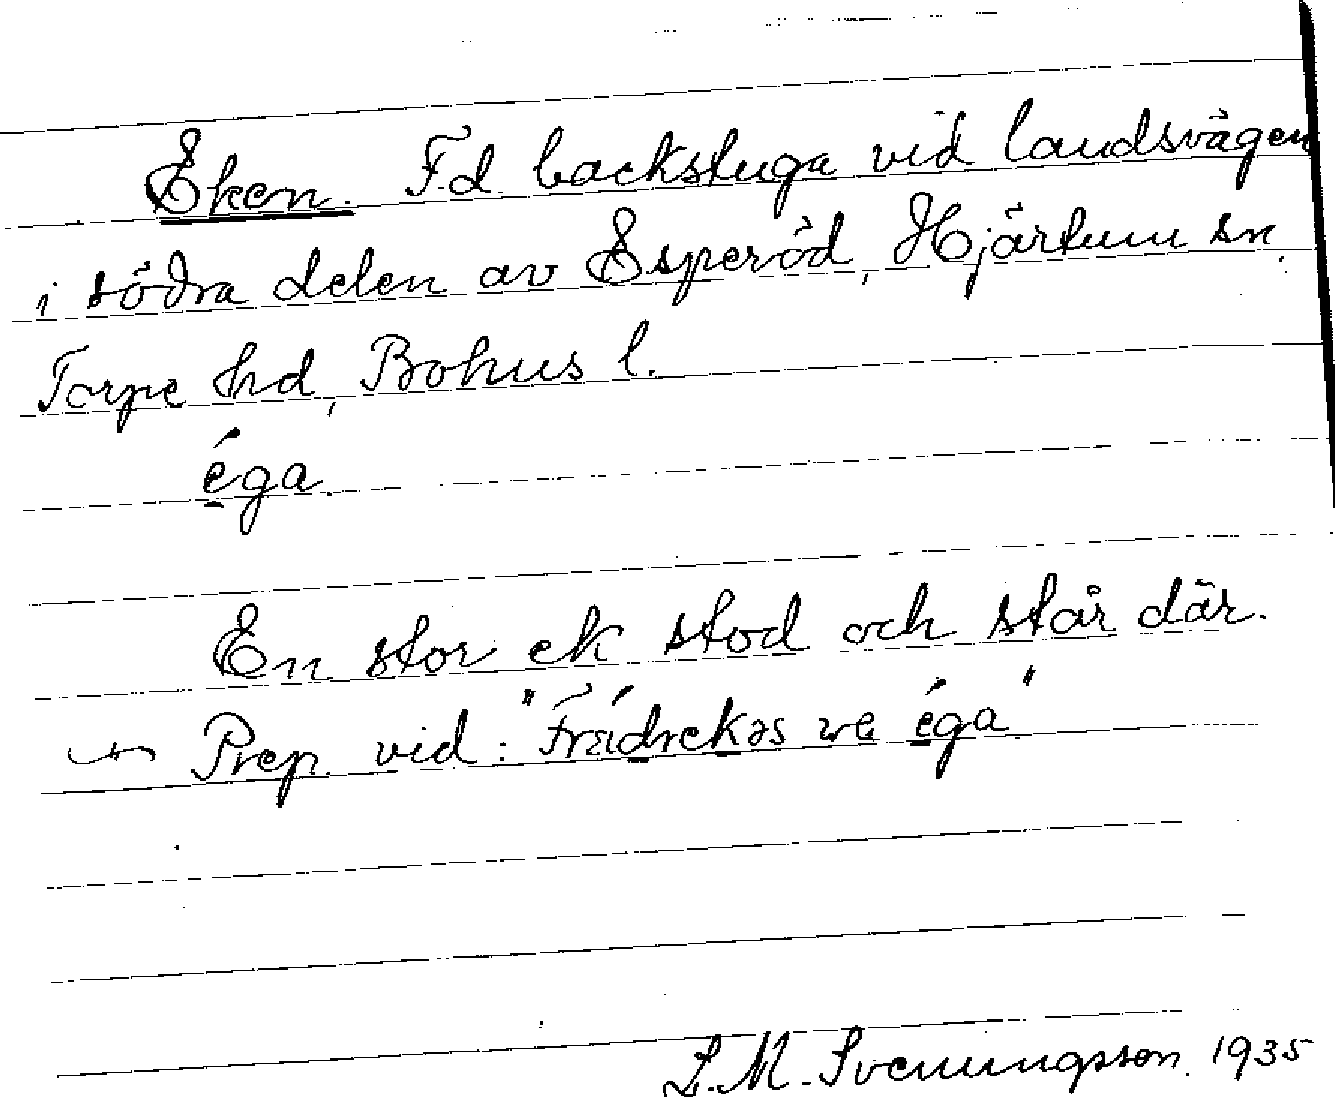 Eken. F.d. backstuga vid landsvägen
i södra delen av Esperöd, Hjärtum sn.
Torpe hd, Bohus l.
éga.
En stor ek stod och står där.
Prep. vid: "Frédrekas ve éga"
L. M. Svenningsson. 1935